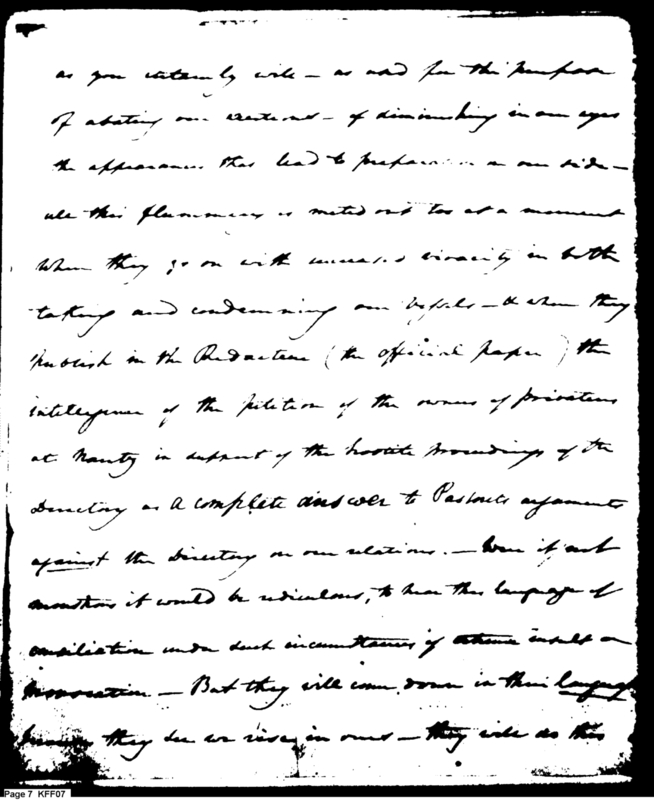 as you certainly will — as used for this purpose
of abating our exertions — of diminishing in our eyes
the appearances that lead to preparation on our side —
all this flummery is meted out too at a moment
when they go on with increased vivacity in both
taking and condemning our vessels — & when they
publish in the Redacteur (the official paper) the
intelligence of the petition of the owners of privateers
at Nantz in support of the hostile proceedings of the
Directory as a complete answer to Pastorets arguments
against the Directory on our relations. — Were it not
monstrous it would be ridiculous, to hear this language of
conciliation under such circumstances of insult or
— But they will come down in their language
they see we rise in ours — they will do this
Page 7 KFF07